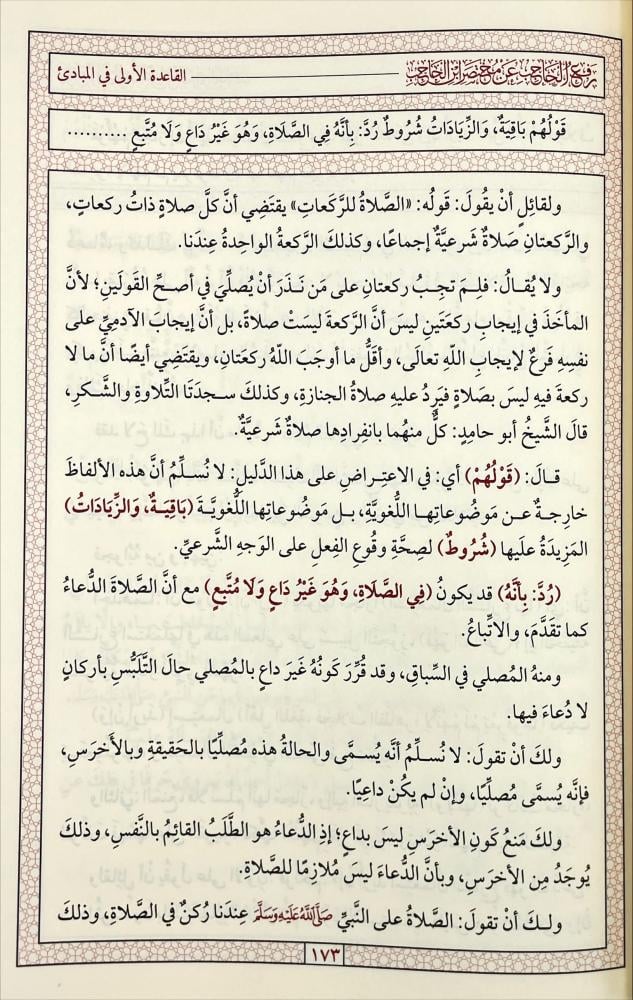 رفع الحاجب عن مختصر ابن الحاجب
القاعدة الأولى في المبادئ
قَوْلُهُمْ بَاقِيَةٌ، وَالزِّيَادَاتُ شُرُوطٌ رُدَّ: بِأَنَّهُ فِي الصَّلَاةِ، وَهُوَ غَيْرُ دَاعٍ وَلَا مُتَّبِعٍ ..........
ولقائلٍ أنْ يقُولَ: قَولُه: «الصَّلاةُ للرَّكَعاتِ» يقتَضِي أنَّ كلَّ صلاةٍ ذاتُ ركعاتٍ،
والرَّكعتانِ صَلاةٌ شَرعيَّةٌ إجماعًا، وكذلكَ الرَّكعةُ الواحِدةُ عِندَنا.
ولا يُقالُ: فلِمَ تجِبُ ركعتانِ على مَن نَذَرَ أنْ يُصلِّيَ في أصحِّ القَولَينِ؛ لأنَّ
المأخَذَ في إيجابِ ركعَتَينِ ليسَ أنَّ الرَّكعةَ ليسَتْ صلاةً، بل أنَّ إيجابَ الآدمِيِّ على
نفسِهِ فَرعٌ لإيجابِ اللّهِ تعالَى، وأقلُّ ما أوجَبَ اللّهُ ركعَتانِ، ويقتَضِي أيضًا أنَّ ما لا
ركعةَ فيهِ ليسَ بصَلاةٍ فيَرِدُ عليهِ صلاةُ الجنازةِ، وكذلكَ سجدَتَا التِّلاوةِ والشُّكرِ،
قالَ الشَّيخُ أبو حامِدٍ: كلٌّ منهُما بانفِرادِها صلاةٌ شَرعيَّةٌ.
قالَ: (قَوْلُهُمْ) أي: في الاعتِراضِ على هذا الدَّليلِ: لا نُسلِّمُ أنَّ هذه الألفاظَ
خارِجةٌ عن مَوضُوعاتِها اللُّغويَّةِ، بل مَوضُوعاتِها اللُّغويَّةَ (بَاقِيَةٌ، وَالزِّيَادَاتُ)
المَزِيدَةُ علَيها (شُرُوطٌ) لصِحَّةِ وقُوعِ الفِعلِ على الوَجهِ الشَّرعيِّ.
(رُدَّ: بِأَنَّهُ) قد يكونُ (فِي الصَّلَاةِ، وَهُوَ غَيْرُ دَاعٍ وَلَا مُتَّبِعٍ) مع أنَّ الصَّلاةَ الدُّعاءُ
كما تقدَّمَ، والاتِّباعُ.
ومنهُ المُصلي في السِّباقِ، وقد قُرِّرَ كَونُهُ غَيرَ داعٍ بالمُصلي حالَ التَّلبُّسِ بأركانٍ
لا دُعاءَ فيها.
ولكَ أنْ تقولَ: لا نُسلِّمُ أنَّه يُسمَّى والحالةُ هذه مُصلِّيًا بالحَقيقةِ وبالأَخرَسِ،
فإنَّه يُسمَّى مُصلِّيًا، وإنْ لم يكُنْ داعِيًا.
ولكَ مَنعُ كَونِ الأخرَسِ ليسَ بداعٍ؛ إذِ الدُّعاءُ هو الطَّلَبُ القائِمُ بالنَّفسِ، وذلكَ
يُوجَدُ مِن الأخرَسِ، وبأنَّ الدُّعاءَ ليسَ مُلازِمًا للصَّلاةِ.
ولكَ أنْ تقولَ: الصَّلاةُ على النَّبيِّ صَلَّى اللَّهُ عَلَيْهِ وَسَلَّمَ عِندَنا رُكنٌ في الصَّلاةِ، وذلكَ
١٧٣